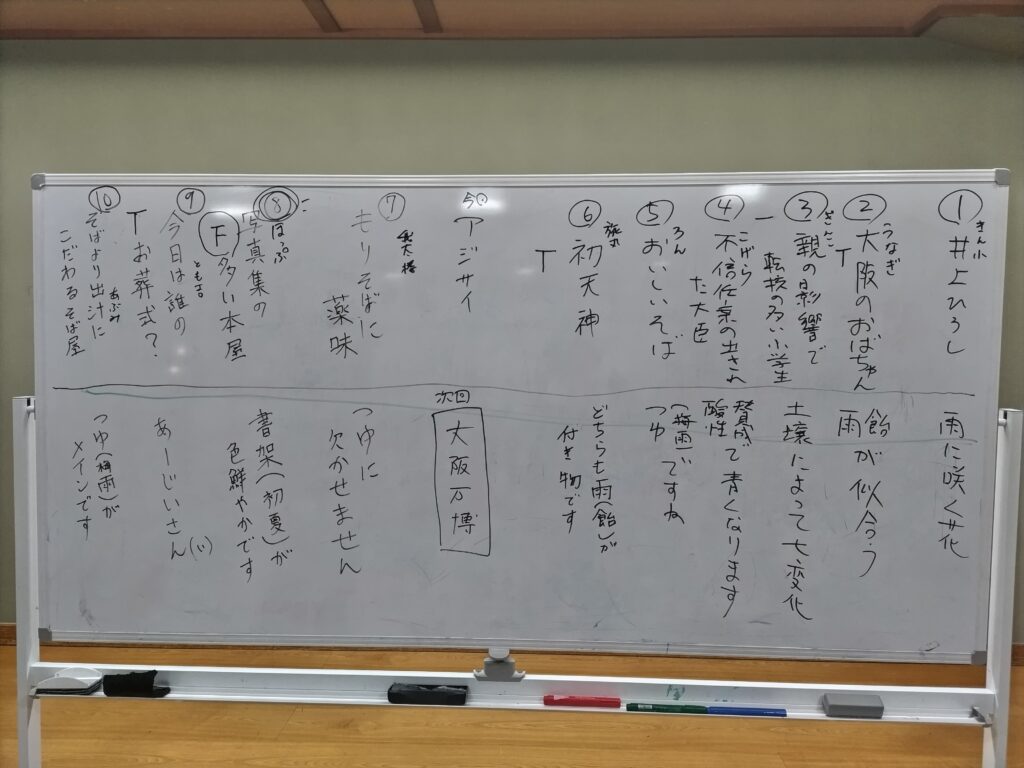 ①
きん小
井上ひろし
雨に咲く花
②
うなぎ
大阪のおばちゃん
T
飴が似合う
雨
③
ぎんこ
親の影響で
転校の多い小学生
土壌によって七変化
④
こげら
不信任案の出され
た大臣
賛成で青くなります
酸性
⑤
ろん
おいしいそば
つゆ
(梅雨)ですね
⑥
初天神
T
どちらも雨(飴)が
付き物です
今回
アジサイ
次回
大阪万博
⑦
もりそばに
薬味
つゆに
欠かせません
⑧
ほっぷ
写真集の
多い本屋
F
書架(初夏)が
色鮮やかです
⑨
とも吉
今日は誰の
お葬式?
T
あーじいさん
⑩
あぶみ
そばより出汁に
こだわるそば屋
つゆ(梅雨)が
メインです